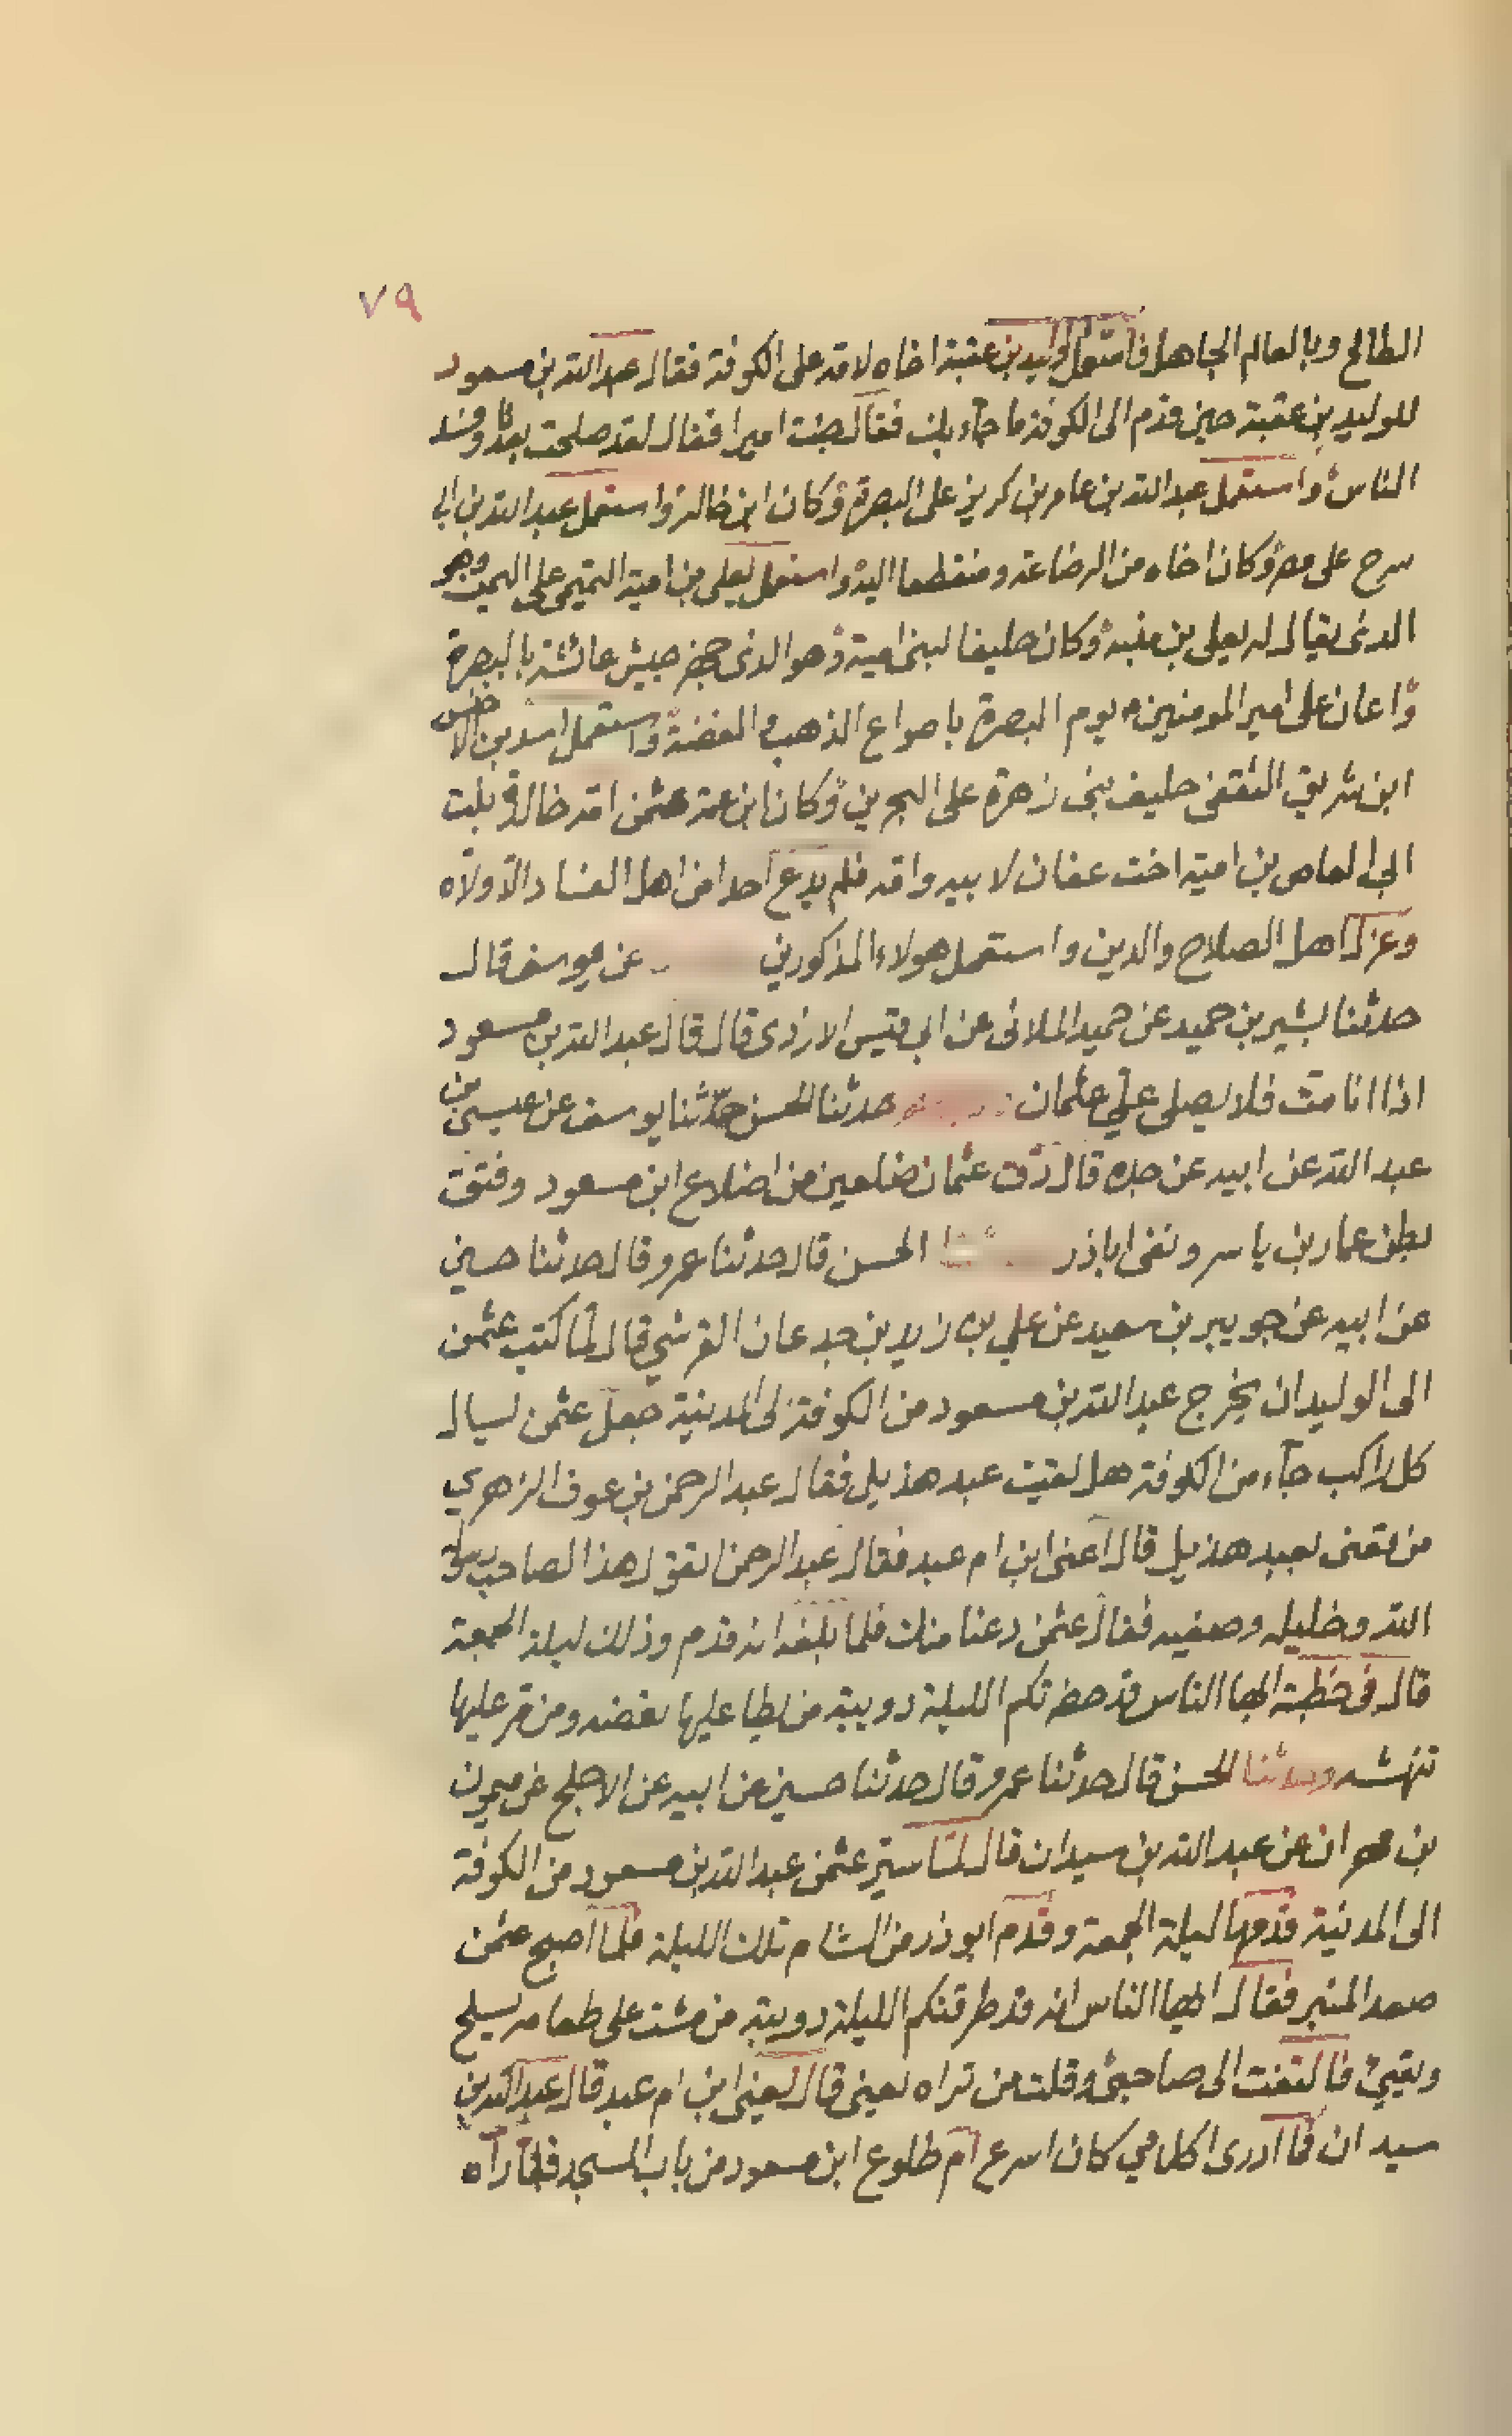 ٧٩
الطالح وبالعالم الجاهل فاستعمل الوليد بن عقبة اخاه لامه على الكوفة فقال عبد الله بن مسعود
للوليد بن عقبة حين قدم الى الكوفة ما جآء بك فقال جئت اميرا فقال لقد صلحت بعدنا وفسد
الناس واستعمل عبد الله بن عامر بن كريز على البصرة وكان ابن خاله واستعمل عبد الله بن ابي
سرح على مصر وكان اخاه من الرضاعة ومنقطعا اليه واستعمل يعلى بن امية التميمي على اليمن وهو
الذى يقال له يعلى بن منبه وكان حليفا لبنى امية وهو الذى جهز جيش عائشة بالبصرة
واعان على امير المومنين يوم البصرة باصواع الذهب والفضة واستعمل اسد بن الاخنس
ابن شريق الثقفى حليف بنى زهرة على البحرين وكان ابن عمة عثمن امه خالدة بنت
ابى العاص بن امية اخت عفان لابيه وامه فلم يدع احدا من اهل الفساد الا ولاه
وعزل اهل الصلاح والدين واستعمل هولاء المذكورين عن يوسف قال
حدثنا بشير بن حميد عن حميد الملائى عن ابي قيس الازدى قال قال عبد الله بن مسعود
اذا انا مت فلا يصلى علي عثمان حدثنا الحسن حدثنا يوسف عن عيسى بن
عبد الله عن ابيه عن جده قال دق عثمان ضلعين من اضلاع ابن مسعود وفتق
بطن عمار بن ياسر ونفى اباذر الحسن قال حدثنا عمرو قال حدثنا حسين
عن ابيه عن جويبر بن سعيد عن علي بن زيد بن جدعان القرشي قال لما كتب عثمن
الى الوليد ان يخرج عبد الله بن مسعود من الكوفة الى المدينة جعل عثمن يسال
كل راكب جآء من الكوفة هل لقيت عبد هذيل فقال عبد الرحمن بن عوف الزهري
من تعنى بعبد هذيل قال اعنى ابن ام عبد فقال عبد الرحمن اتقول هذا لصاحب رسول
الله وخليله وصفيه فقال عثمن دعنا منك فلما بلغه انه قدم وذلك ليلة الجمعة
قال فى خطبته ايها الناس قد حضرتكم الليلة دويبة من يطا عليها تعضه ومن مر عليها
تنهشه وحدثنا الحسن قال حدثنا عمرو قال حدثنا حسين عن ابيه عن الاجلح عن ميمون
بن مهران عن عبد الله بن سيدان قال لما سير عثمن عبد الله بن مسعود من الكوفة
الى المدينة قدمها ليلة الجمعة وقدم ابوذر من الشام تلك الليلة فلما اصبح عثمن
صعد المنبر فقال ايها الناس انه قد طرقتكم الليلة دويبة من مشت على طعامه يسلح
ويقيئ فالتفت الى صاحبي وقلت من تراه يعنى قال يعنى ابن ام عبد قال عبد الله بن
سيدان فما ادرى اكلامي كان اسرع ام طلوع ابن مسعود من باب المسجد فلما رآه